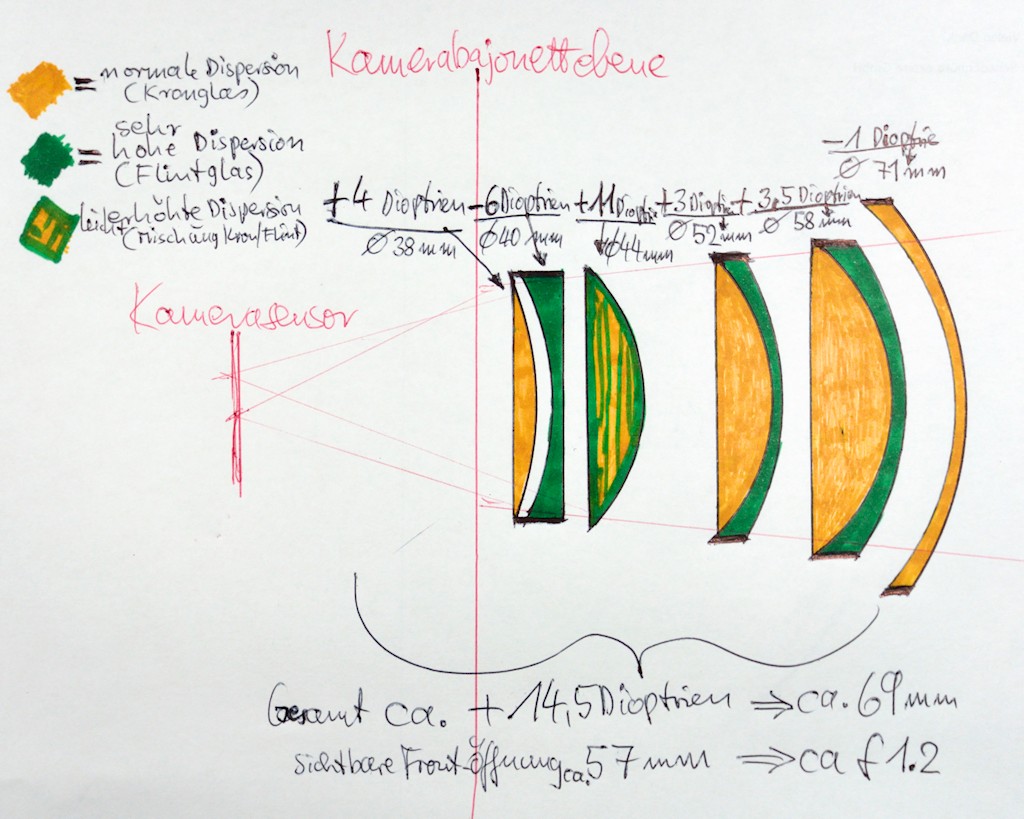 Kamerabajonettebene
= normale Dispersion
(Kronglas)
= sehr
hohe Dispersion
(Flintglas)
leicht erhöhte Dispersion
(Mischung Kron/Flint)
+4 Dioptrien
Ø 38 mm
-6 Dioptrien
Ø40 mm
+11 Dioptrie
Ø44mm
+3 Dioptrien
Ø 52mm
+3,5 Dioptrien
Ø 58 mm
-1 Dioptrie
Ø 71 mm
Kamerasensor
Gesamt ca. +14,5 Dioptrien ⇒ ca. 69 mm
sichtbare Front-Öffnung ca. 57 mm ⇒ ca f 1.2